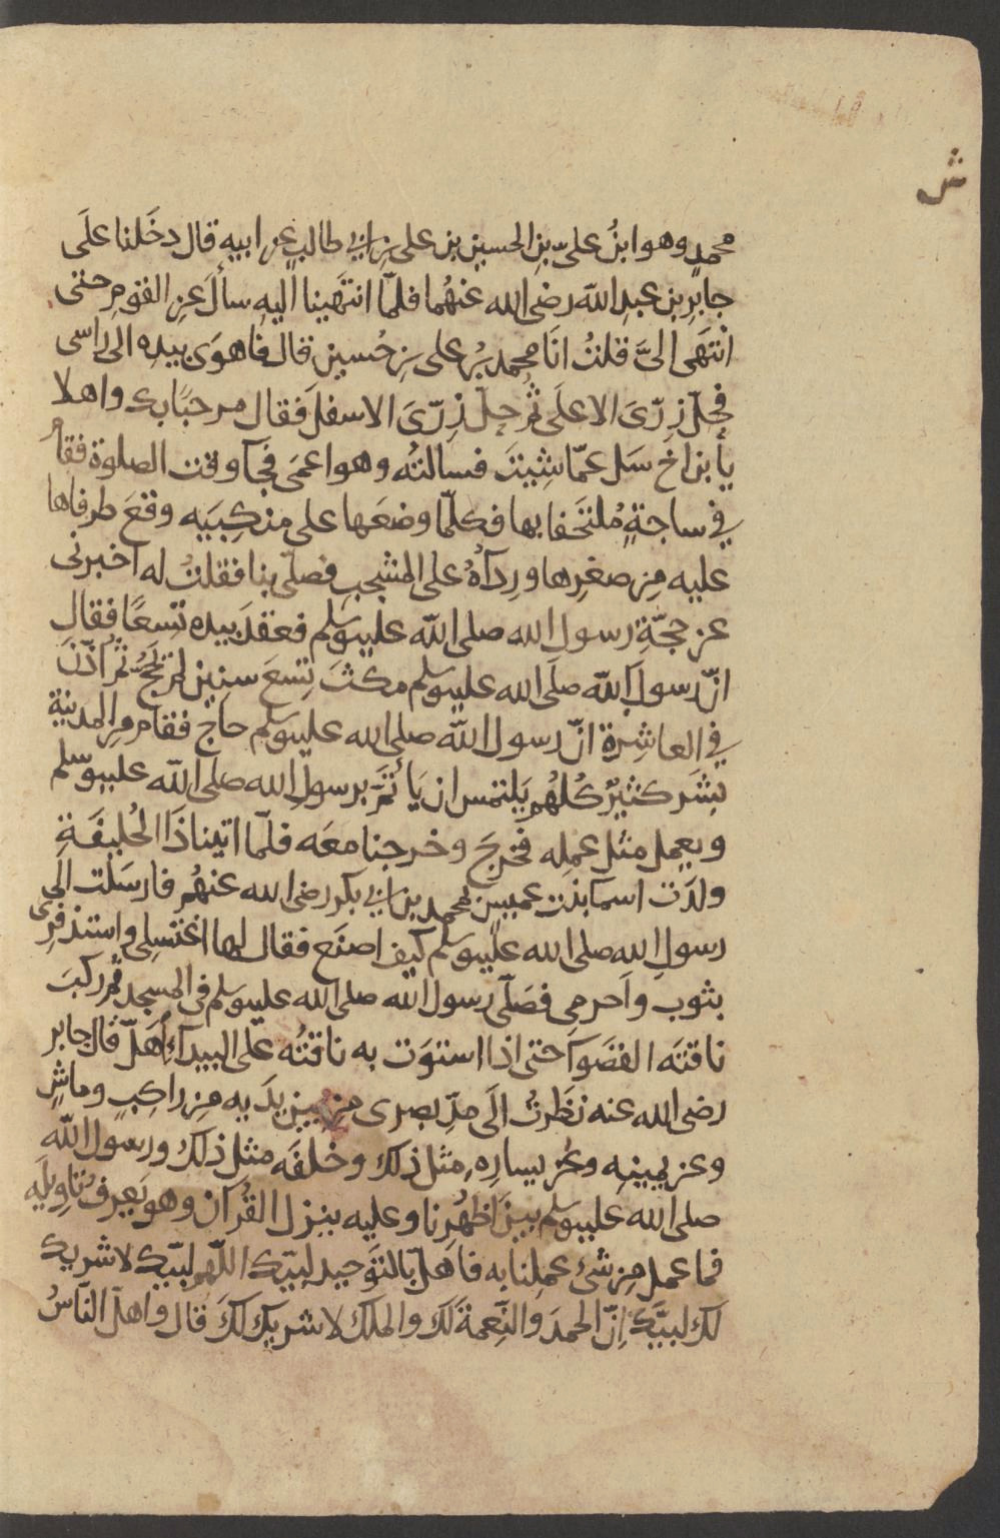 ش
محمدٍ وهو ابنُ علىّ بنِ الحسين بن على بن ابي طالب عن ابيهِ قال دخَلنا علَى
جابرِ بن عبدِ الله رضى الله عنهُما فلمّا انتهَينا اليهِ سألَ عنِ القومِ حتى
انتهَى الىَّ فقلتُ انَا محمد بْنُ على بنِ حُسين قال فاهوَى بيدِه الى راسى
فحلّ زِرّىَ الاعلَى ثم حلّ زِرّىَ الاسفلَ فقال مرحبًا بك واهلا
يأ بن اخ سَل عمّا شِيتَ فسالتُه وهو اعمَى فجآ وقت الصلوة فقام
في ساجةٍ مُلتَحَفا بها فكلّما وضعَها على منكِبَيه وقعَ طرفاها
عليه مِن صغرِها ورِدآهُ على المشجب فصلّى بنا فقلتُ له اخبرنى
عن حجّةِ رسول الله صلى الله عليه وسلم فعقدَ بيده تسعًا فقال
انّ رسولَ الله صلَى الله عليه وسلم مكثَ تِسعَ سنين لم يَحُج ثم اذّنَ
في العاشِرة انّ رسول الله صلى الله عليه وسلم حاج فقام من المدينة
بشَر كثيرٌ كُلهُم يَلتمس ان يَأتمَّ برسولِ الله صلى الله عليه وسلم
ويعمل مثل عملِه فخرجَ وخرجنا معَه فلمّا اتينا ذَا الحُليفَةِ
ولدَت اسما بنت عميس محمد بن ابي بكر رضى الله عنهُم فارسَلت الَى
رسولِ الله صلى الله عليه وسلم كيف اصنَع فقال لها اغتسلى واستذفرى
بثوب واَحرمى فصَلّى رسول الله صلى الله عليه وسلم فى المسجد ثم ركبَ
ناقتَه القصَوآ حتى اذا استوَت به ناقتُه علَى البيدآءِ اَهَلّ قال جابر
رضى الله عنه نظَرتُ الَى مدِّ بصرى من بين يدَيه مِن راكبٍ وماشٍ
وعن يمينِه وعن يسارِه مثل ذلك وخلفَه مثل ذلك ورسول الله
صلى الله عليه وسلم بينَ اظهُرِنا وعليه ينزل القُرآن وهو يَعرفُ تاوِيله
فما عمل مِن شئ عمِلنا به فاَهلّ بالتوَحيد لبيّك اللّهم لبيّك لا شريك
لك لبيَّك اِنّ الحمدَ والنِّعمةَ لك والملك لا شريكَ لكَ قال واهلّ النَّاسُ